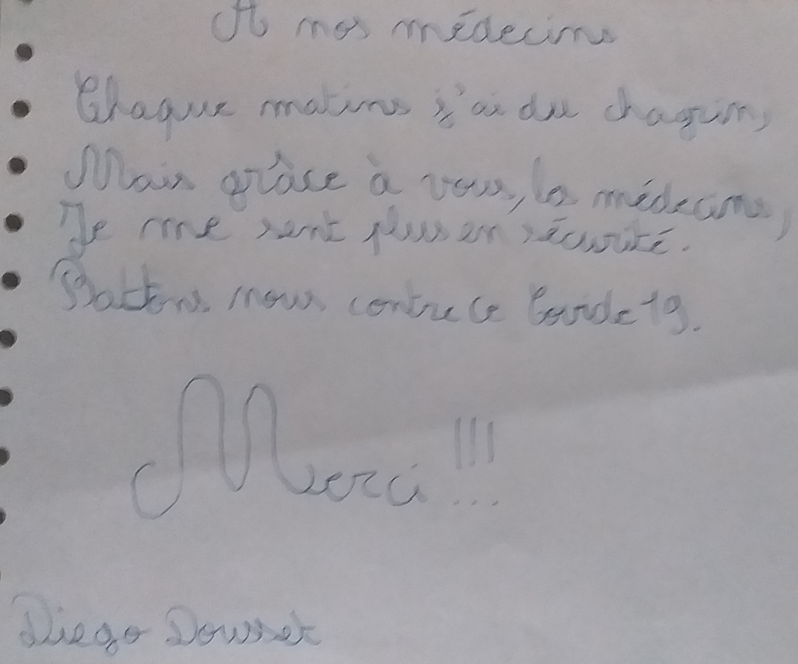 A nos médecins
Chaque matins j'ai du chagrin,
Mais grâce à vous, les médecins,
Je me sent plus en sécurité.
Battons nous contre ce Covide 19.
Merci!!!
Diego Dousset